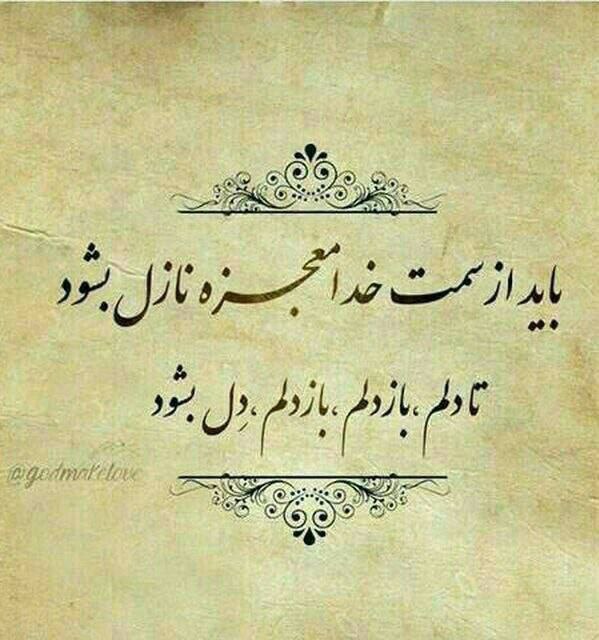 باید از سمت خدا معجزه نازل بشود
تا دلم ،باز دلم ،باز دلم ،دِل بشود
@godmakelove